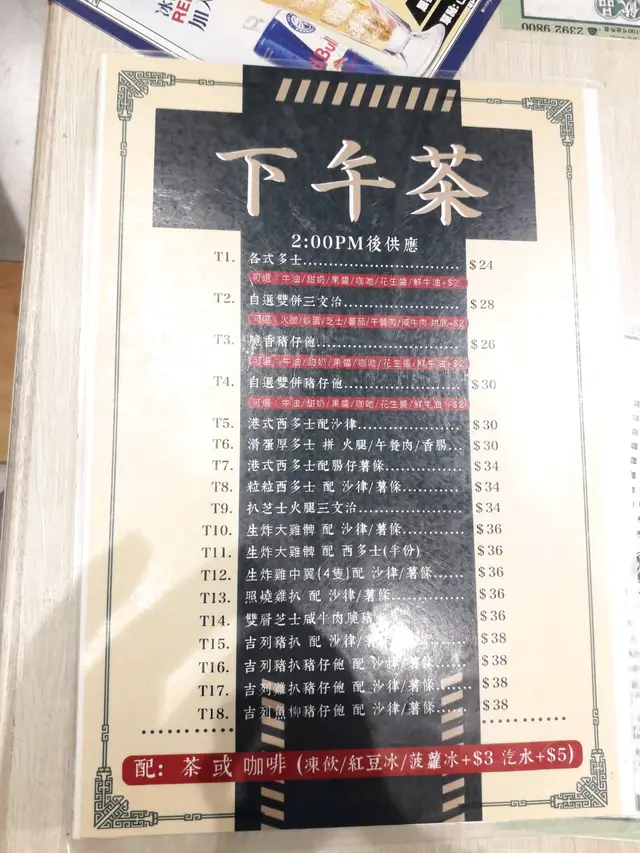 RE
加
Bull
2392 9800
下午茶
2:00PM後供應
T1. 各式多士 $24
可選：牛油/甜奶/果醬/咖吔/花生醬/鮮牛油+$2
T2. 自選雙併三文治 $28
可選：火腿/炒蛋/芝士/蕃茄/午餐肉/咸牛肉 烘底+$2
T3. 脆香豬仔飽 $26
可選：牛油/甜奶/果醬/咖吔/花生醬/鮮牛油+$2
T4. 自選雙併豬仔飽 $30
可選：牛油/甜奶/果醬/咖吔/花生醬/鮮牛油+$2
T5. 港式西多士配沙律 $30
T6. 滑蛋厚多士 拼 火腿/午餐肉/香腸 $30
T7. 港式西多士配腸仔薯條 $34
T8. 粒粒西多士 配 沙律/薯條 $34
T9. 扒芝士火腿三文治 $34
T10. 生炸大雞髀 配 沙律/薯條 $36
T11. 生炸大雞髀 配 西多士(半份) $36
T12. 生炸雞中翼(4隻)配 沙律/薯條 $36
T13. 照燒雞扒 配 沙律/薯條 $36
T14. 雙層芝士咸牛肉脆豬 $36
T15. 吉列豬扒 配 沙律/薯條 $38
T16. 吉列豬扒豬仔飽 配 沙律/薯條 $38
T17. 吉列雞扒豬仔飽 配 沙律/薯條 $38
T18. 吉列魚柳豬仔飽 配 沙律/薯條 $38
配: 茶 或 咖啡 (凍飲/紅豆冰/菠蘿冰+$3 汽水+$5)